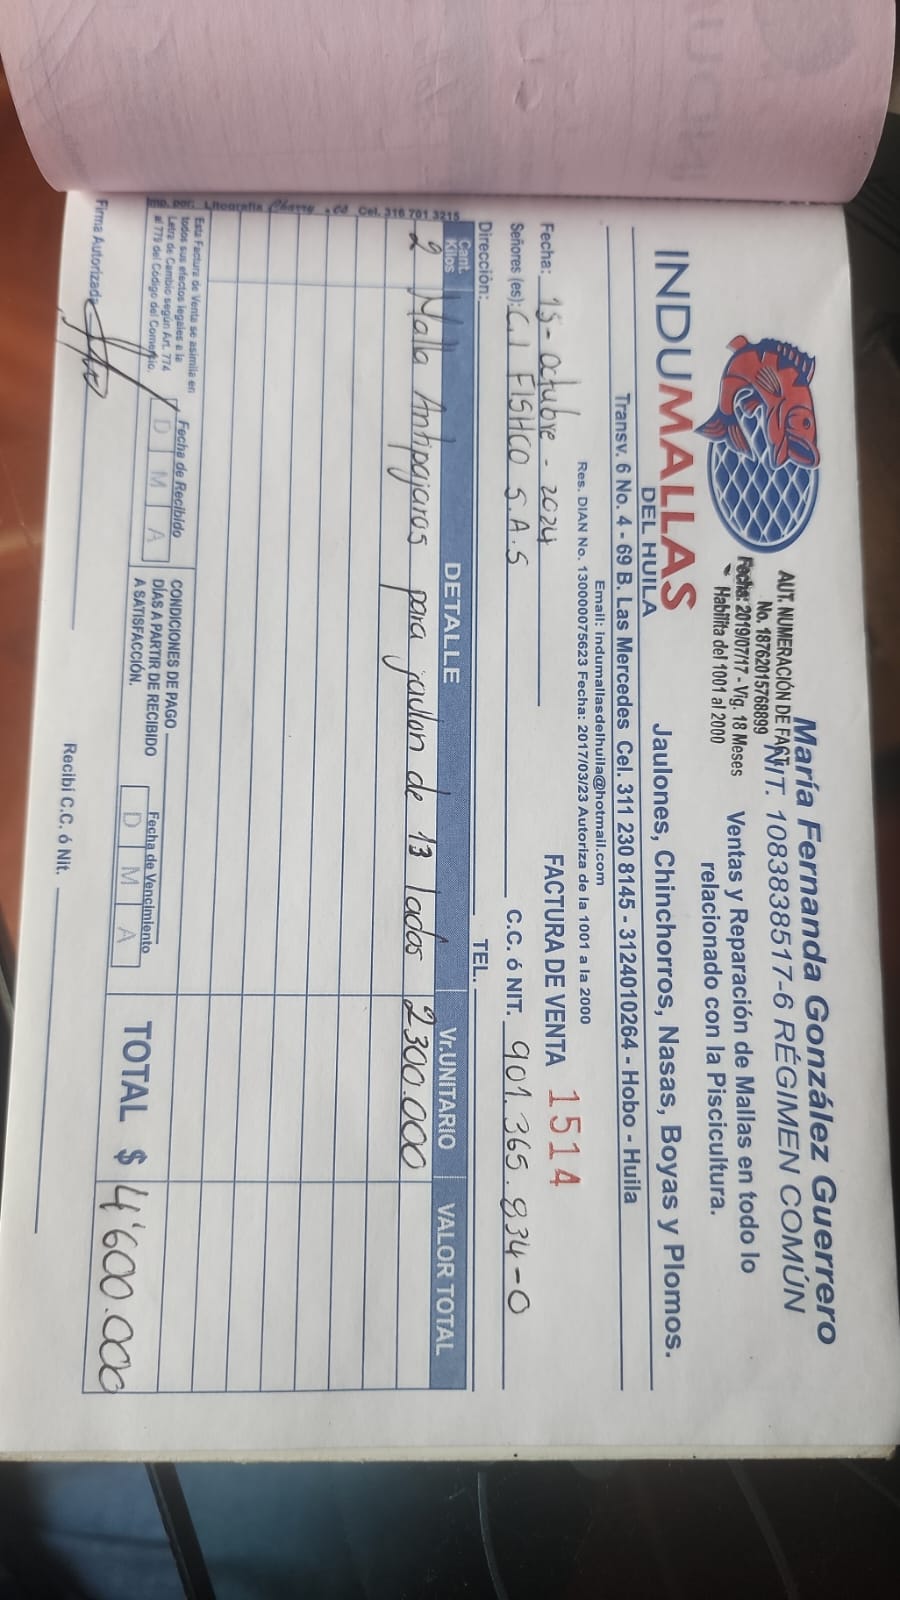 María Fernanda González Guerrero
NIT. 1083838517-6 RÉGIMEN COMÚN
AUT. NUMERACIÓN DE FACT.
No. 18762015768899
Fecha: 2019/07/17 - Vig. 18 Meses
Habilita del 1001 al 2000
Ventas y Reparación de Mallas en todo lo
relacionado con la Piscicultura.
INDUMALLAS
DEL HUILA
Jaulones, Chinchorros, Nasas, Boyas y Plomos.
Transv. 6 No. 4 - 69 B. Las Mercedes Cel. 311 230 8145 - 3124010264 - Hobo - Huila
Email: indumallasdelhuila@hotmail.com
Res. DIAN No. 130000075623 Fecha: 2017/03/23 Autoriza de la 1001 a la 2000
Fecha: 15 - Octubre - 2024 FACTURA DE VENTA 1514
Señores (es): C.I FISHCO S.A.S C.C. ó NIT. 901.365.834-0
Dirección: TEL.
Cant. Kilos DETALLE Vr.UNITARIO VALOR TOTAL
2 Malla Antipajaros para jaulon de 13 lados 2300.000
Imp. por: Litografía Charry Cel. 316 701 3215
Esta Factura de Venta se asimila en
todos sus efectos legales a la
Letra de Cambio según Art. 774
al 779 del Código del Comercio.
Fecha de Recibido
D M A
CONDICIONES DE PAGO
DÍAS A PARTIR DE RECIBIDO
A SATISFACCIÓN.
Fecha de Vencimiento
D M A
TOTAL $ 4'600.000
Firma Autorizada
Recibí C.C. ó Nit.